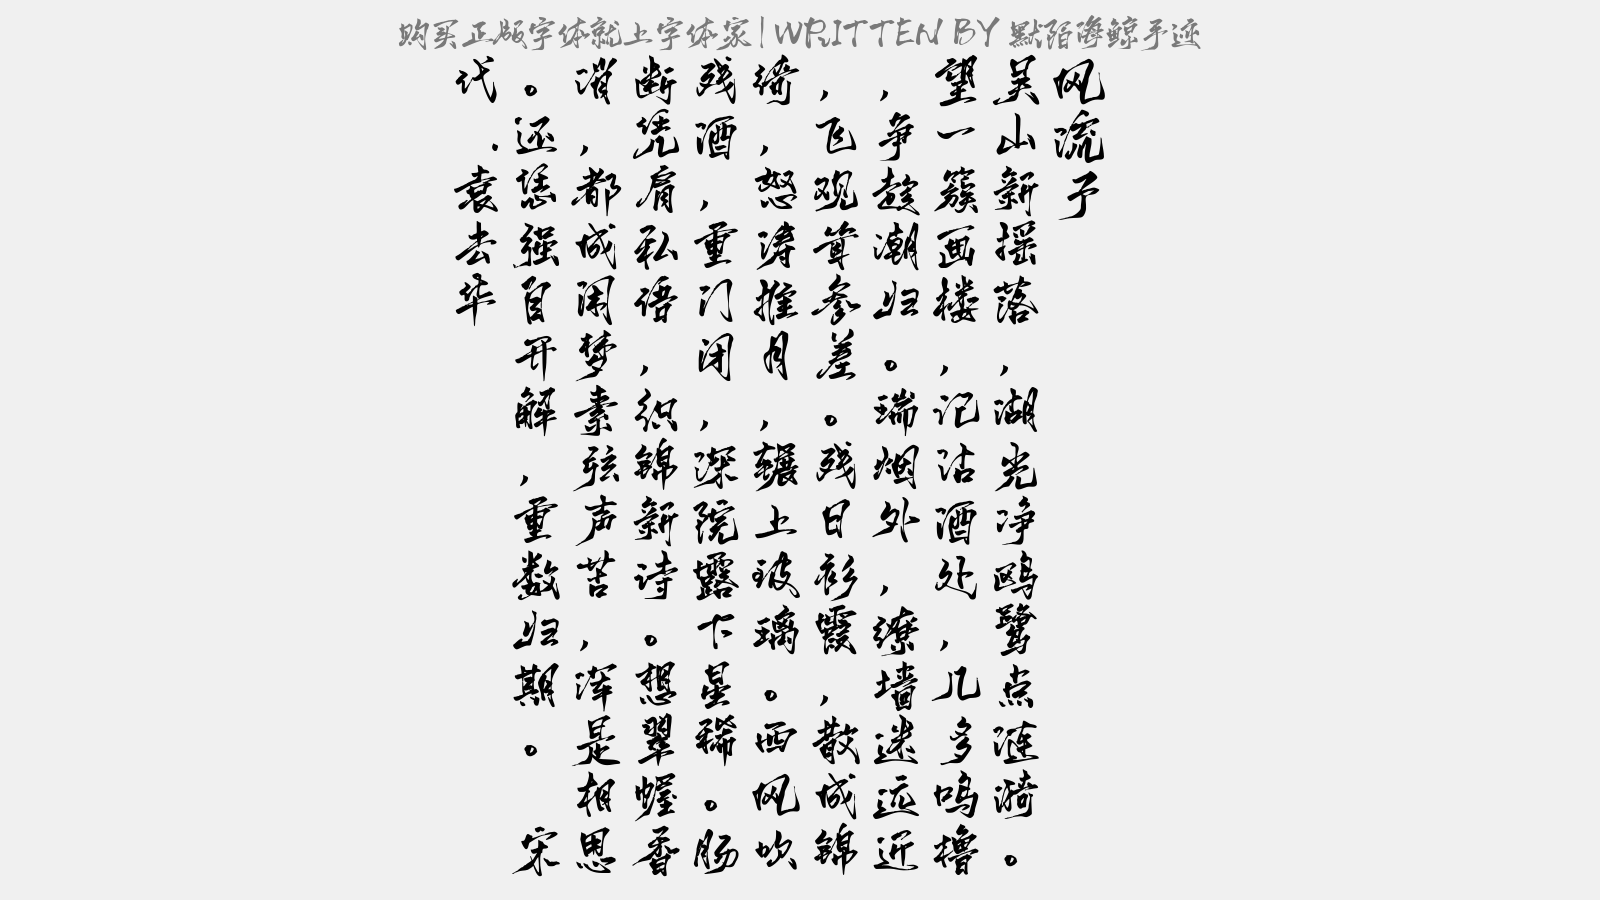 购买正版字体就上字体家|WRITTEN BY 默陌海鲸手迹
风流子
吴山新摇落，湖光净鸥鹭点涟漪。
望一簇画楼，记沽酒处，几多鸣橹
，争趁潮归。瑞烟外，缭墙迷远近
，飞观耸参差。残日衫霞，散成锦
绮，怒涛推月，辗上玻璃。西风吹
残酒，重门闭，深院露下星稀。肠
断凭肩私语，织锦新诗。想翠幄香
消，都成闲梦素弦声苦，浑是相思
。还恁强自开解，重数归期。 宋
代.袁去华